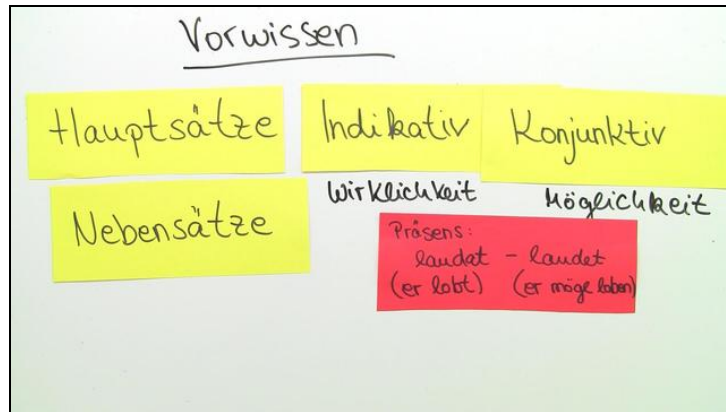 Vorwissen
Hauptsätze
Indikativ
Konjunktiv
Wirklichkeit
Möglichkeit
Nebensätze
Präsens:
laudat - laudet
(er lobt) (er möge loben)